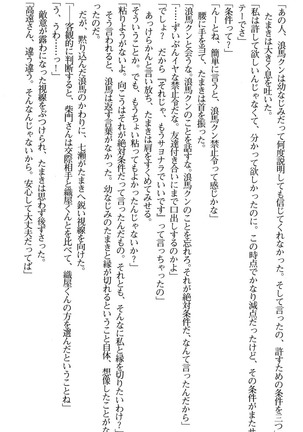 あの人、浪馬クンは幼なじみだって何度説明しても信じてくれなかったの。そのうえ、許すための条件を二つ
たまきは大きく息を吐いた。
「私は許して欲しいんじゃなくて、分かって欲しかったのに。この時点でかなり減点だったけど、その条件がまたサ
テーでさ」
「条件って？」
「んーとね、簡単に言うと、浪馬クン禁止令って感じかな」
腰に手を当て、たまきは首を振った。
「浪馬クンと会うな。浪馬クンのことを話すな。浪馬クンのことを忘れろ。それが絶対条件だ、なんて言ったんだから」
「……ずいぶんイヤな禁止令だな。友達付き合いにまで口出しするのかよ」
「でしょ？　だから『それじゃ、もうサヨナラでいいです』って言っちゃったの」
あっけらかんと言い放ち、たまきは肩をすくめてみせる。
「そういうことか。でも、もうちょい粘ってもよかったんじゃないか？」
「粘りようがないよ、向こうはそれが絶対条件だって言ったんだもの。それとも、そんなに私と縁を切りたいわけ？」
そう言われると、浪馬は返す言葉がなかった。幼なじみのたまきと縁が切れるということ自体、想像したことがな
かったのだ。
だが、黙り込んだ浪馬のかわりに、七瀬がたまきへ鋭い視線を向けた。
「……客観的に判断すると、柴門さんは交際相手と織屋くんとを比べて、織屋くんの方を選んだということね」
「う、うわっ……」
敵意が露わになった視線をぶつけられ、たまきは思わず後ずさった。
「高遠さん、違う違う。そんなんじゃないから。安心して大丈夫だってば」